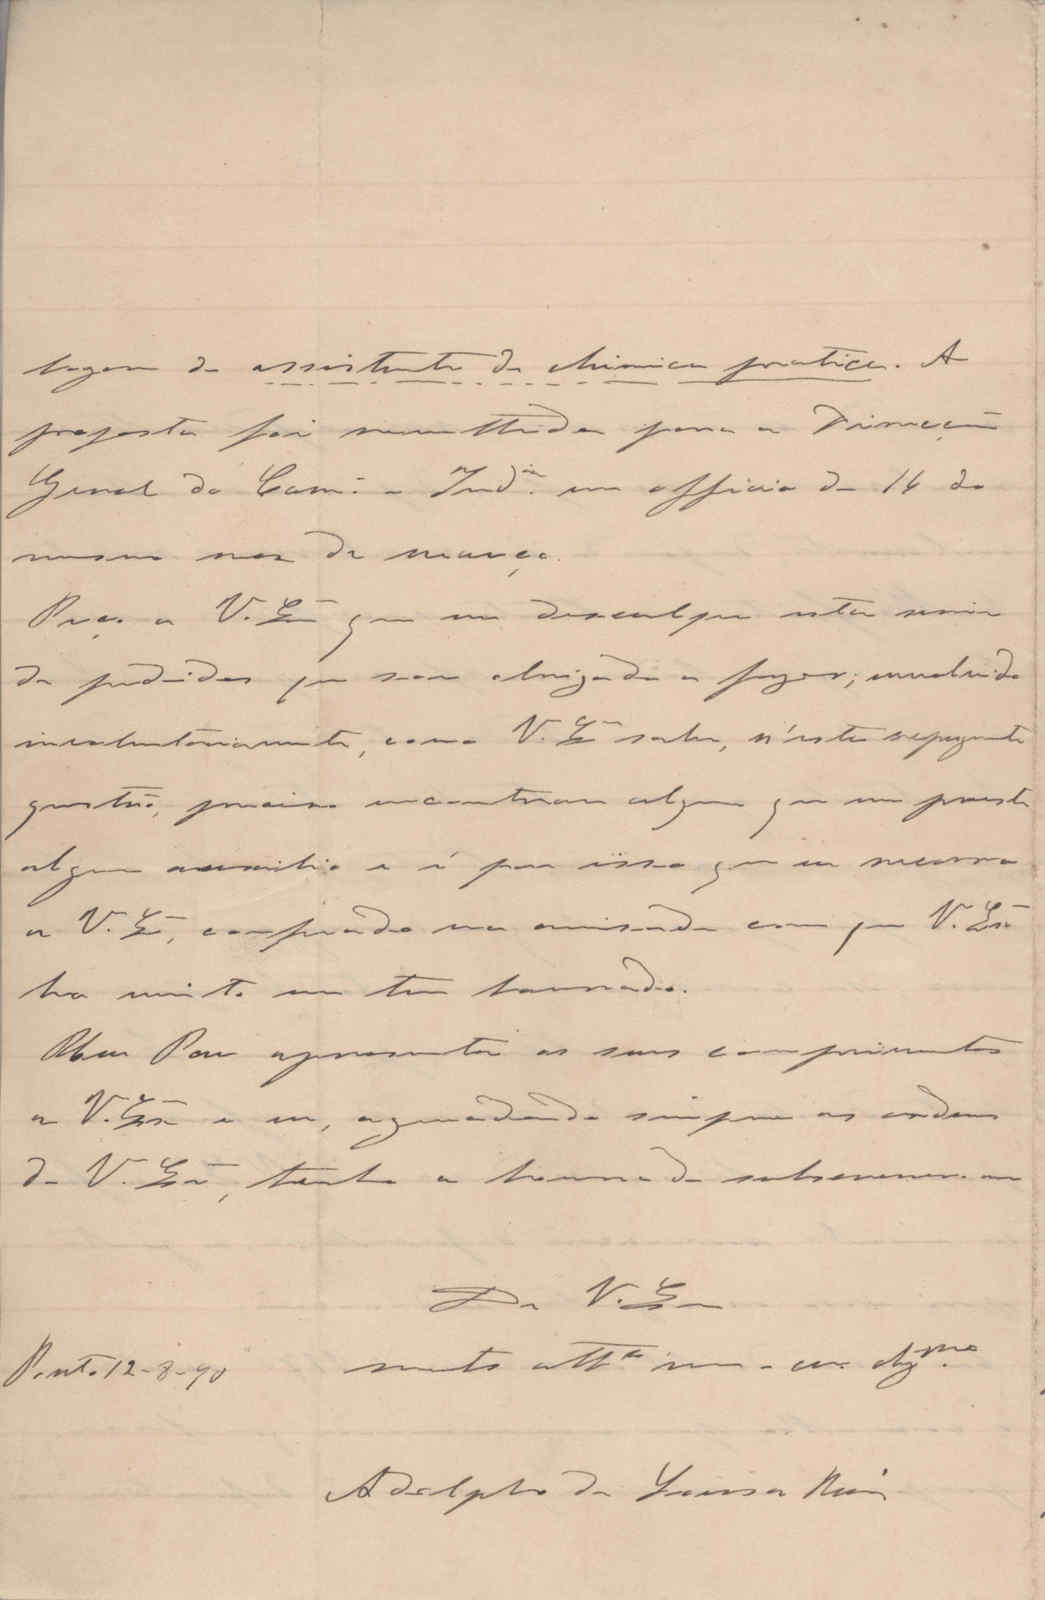 logar de assistente de chimica pratica. A
proposta foi remettida para a Direcção
Geral do Com. e Ind.ia em officio de 14 do
mesmo mez de março.
Peço a V. Exa que me desculpe esta serie
de pedidos que sou obrigado a fazer; envolvido
involuntariamente, como V. Exa sabe, n'esta repugnante
questão, preciso encontrar alguem que me preste
algum auxilio e é por isso que eu recorro
a V. Exa, confiado na amisade com que V. Exa
ha muito me tem honrado.
Meu Pae apresenta os seus comprimentos
a V. Exa e eu, aguardando sempre as ordens
de V. Exa, tenho a honra de subscrever-me
De V. Exa
Porto 12-8-90 muito att.to ven.or e cr.o obg.mo
Adolpho de Sousa Reis